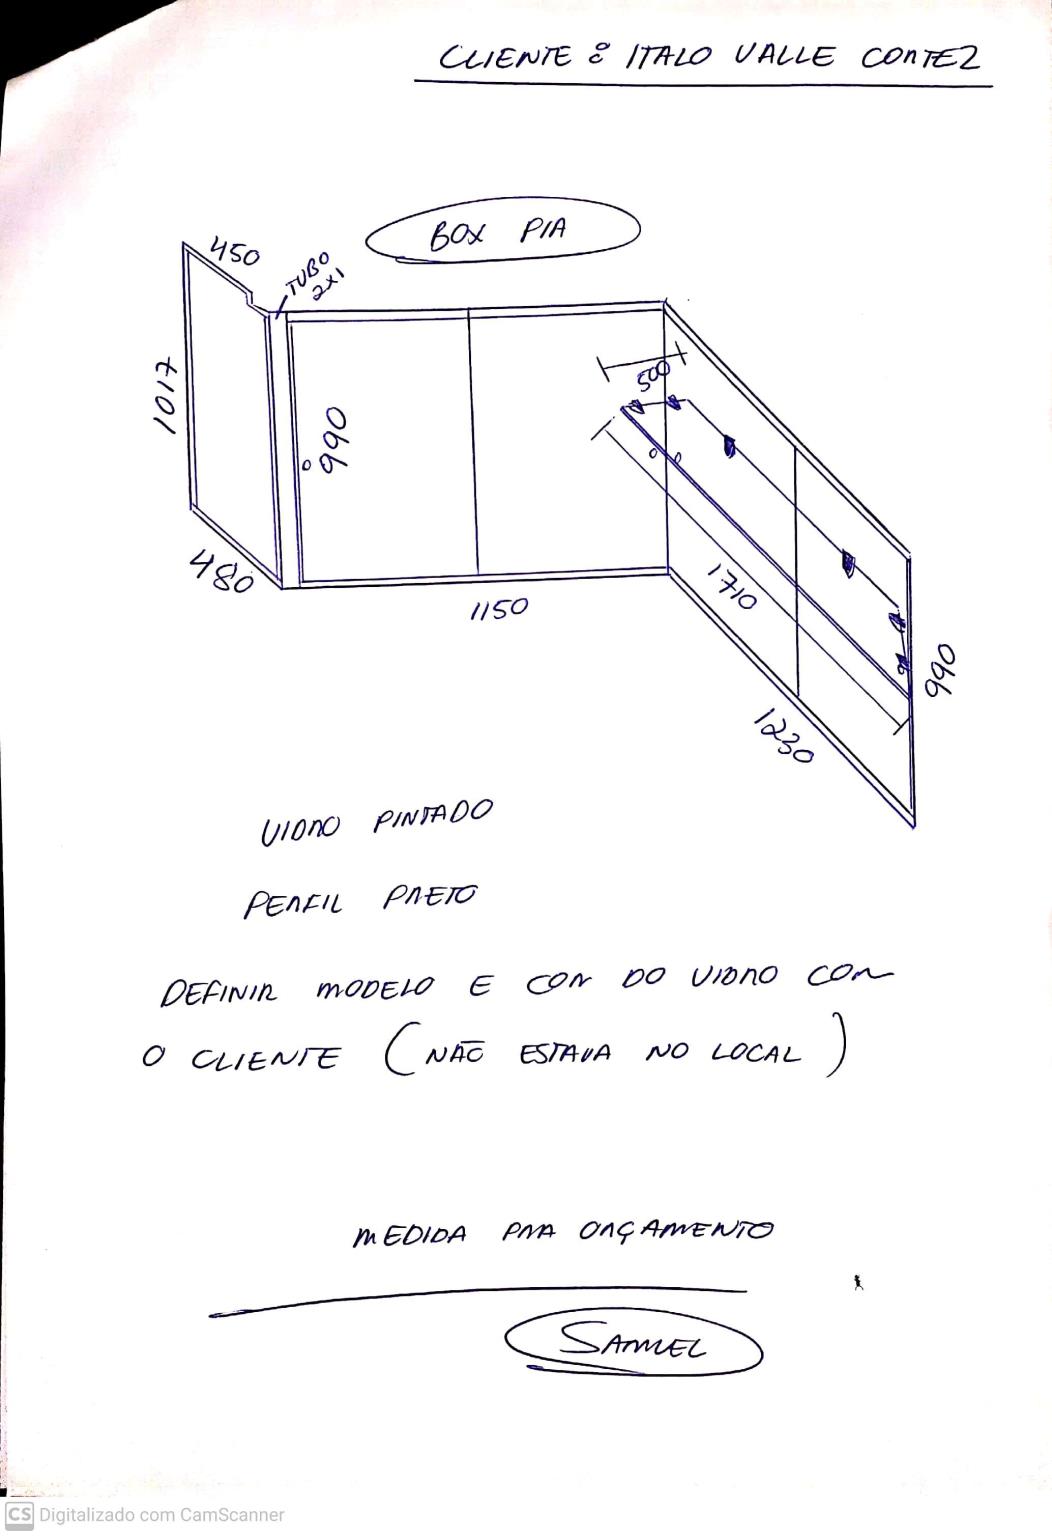 CLIENTE: ITALO VALLE CORTEZ
BOX PIA
450
TUBO
2x1
1017
990
500
480
1150
1710
990
1230
VIDRO PINTADO
PERFIL PRETO
DEFINIR MODELO E COR DO VIDRO COM
O CLIENTE (NÃO ESTAVA NO LOCAL)
MEDIDA PRA ORÇAMENTO
SAMUEL
CS Digitalizado com CamScanner